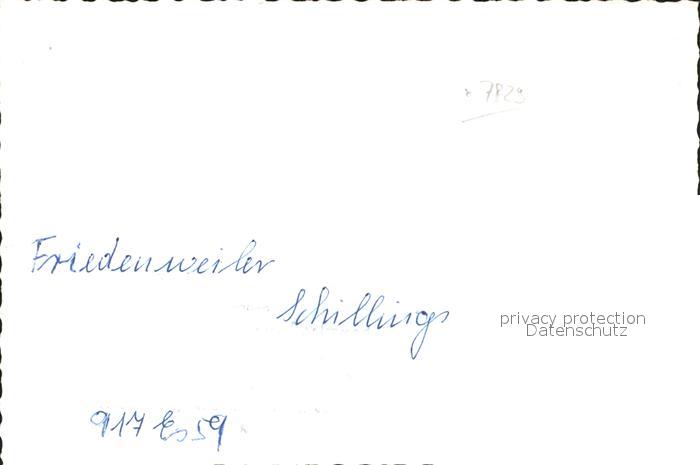 * 7829
Friedenweiler
Schillings
privacy protection
Datenschutz
917 Es 59